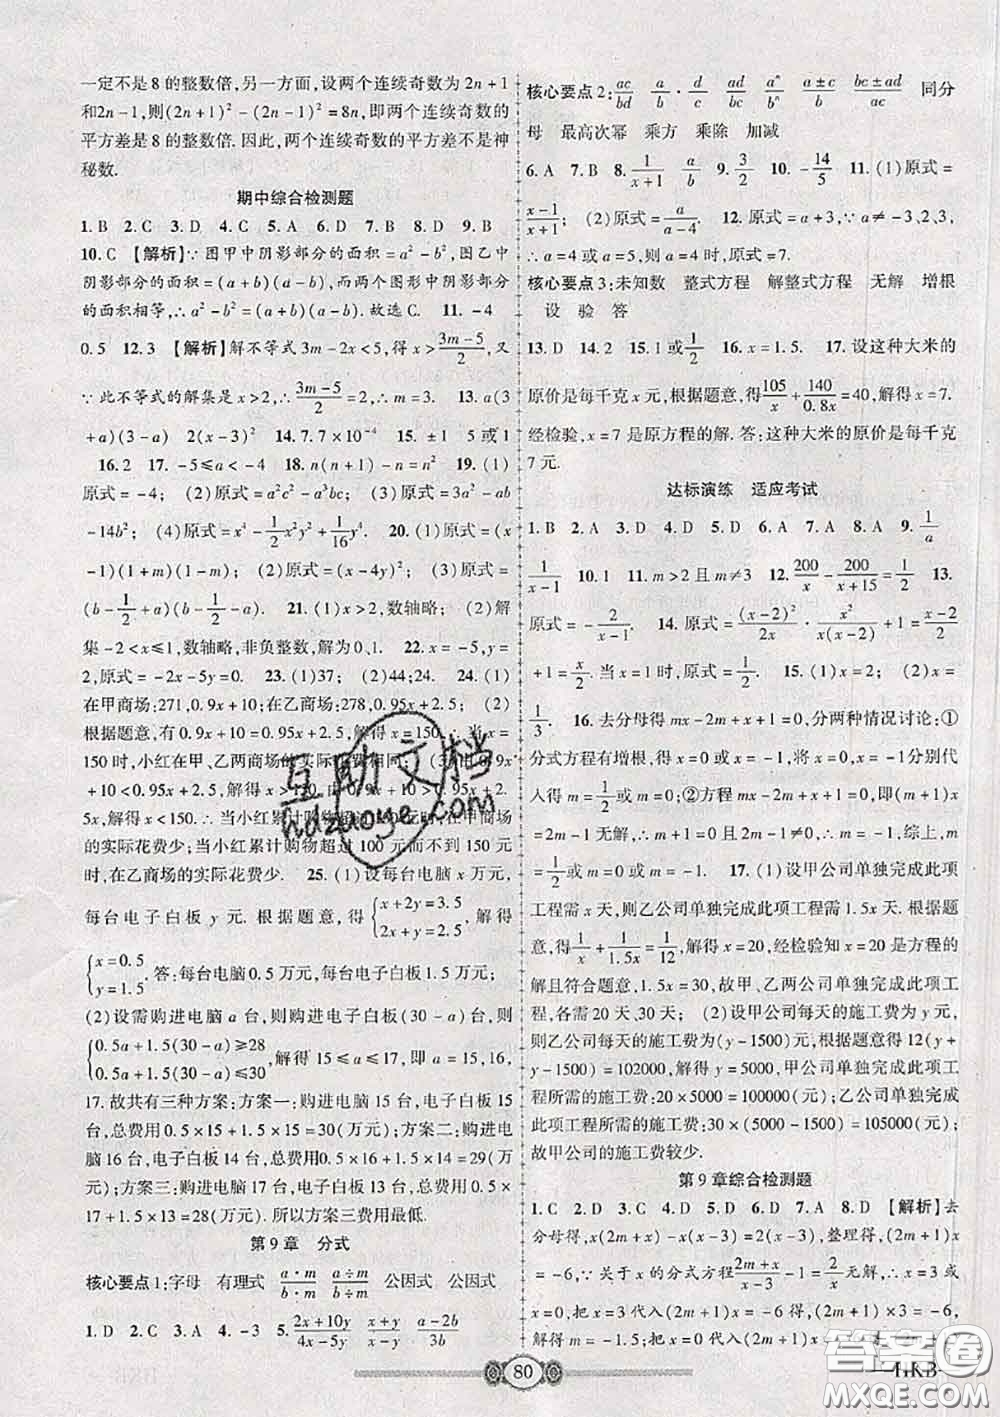 一定不是8的整数倍.另一方面,设两个连续奇数为2n+1
和2n-1,则(2n+1)²-(2n-1)²=8n,即两个连续奇数的
平方差是8的整数倍.因此,两个连续奇数的平方差不是神
秘数.
期中综合检测题
1.B 2.C 3.D 4.C 5.D 6.B 7.B 8.D 9.B
10.C 【解析】∵图甲中阴影部分的面积=a²-b²,图乙中
阴影部分的面积=(a+b)(a-b),而两个图形中阴影部分
的面积相等,∴a²-b²=(a+b)(a-b).故选C. 11.-4
0.5 12.3 【解析】解不等式3m-2x<5,得x>(3m-5)/2,又
∵此不等式的解集是x>2,∴(3m-5)/2=2,∴m=3. 13.a(3
+a)(3-a) 2(x-3)² 14.7.7×10⁻⁴ 15.±1 5或1
16.2 17.-5≤a<-4 18.n(n+1)-n=n² 19.(1)
原式=-4;(2)原式=a²c²-a³bc;(3)原式=3a²-ab
-14b²;(4)原式=x⁴-1/2x²y²+1/16y⁴. 20.(1)原式=(x
-1)(1+m)(1-m);(2)原式=(x-4y)²;(3)原式=
(b-1/2+a)(b-1/2-a). 21.(1)x>2,数轴略;(2)解
集-2<x≤1,数轴略,非负整数解为0、1. 22.x=-5,y=
2,原式=-2x-5y=0. 23.(1)37;(2)44;24. 24.(1)
在甲商场:271,0.9x+10;在乙商场:278,0.95x+2.5;(2)
根据题意,有0.9x+10=0.95x+2.5,解得x=150,∴当x=
150时,小红在甲、乙两商场的实际花费相同;(3)由0.9x
+10<0.95x+2.5,解得x>150,由0.9x+10>0.95x+
2.5,解得x<150.∴当小红累计购物超过150元时,在甲商场
的实际花费少;当小红累计购物超过100元而不到150元
时,在乙商场的实际花费少. 25.(1)设每台电脑x万元,
每台电子白板y元.根据题意,得{x+2y=3.5,2x+y=2.5,解得
{x=0.5,y=1.5.答:每台电脑0.5万元,每台电子白板1.5万元.
(2)设需购进电脑a台,则购进电子白板(30-a)台,则
{0.5a+1.5(30-a)≥28,0.5a+1.5(30-a)≤30,解得15≤a≤17,即a=15,16,
17.故共有三种方案:方案一:购进电脑15台,电子白板15
台,总费用0.5×15+1.5×15=30(万元);方案二:购进电
脑16台,电子白板14台,总费用0.5×16+1.5×14=29(万
元);方案三:购进电脑17台,电子白板13台,总费用0.5×17
+1.5×13=28(万元).所以方案三费用最低.
第9章 分式
核心要点1:字母 有理式 (a·m)/(b·m) (a÷m)/(b÷m) 公因式 公因式
1.D 2.C 3.A 4.-3 5.(2x+10y)/(4x-5y) (x+y)/(x-y) (a-2b)/3b
核心要点2:ac/bd a/b·d/c ad/bc aⁿ/bⁿ (a±c)/b (bc±ad)/ac 同分
母 最高次幂 乘方 乘除 加减
6.A 7.B 8.1/(x+1) a/b 9.3/2 10.-14/5 11.(1)原式=
(x-1)/(x+1);(2)原式=a/(a-4). 12.原式=a+3,∵a≠-3,2,3,
∴a=4或a=5,∴当a=4时,原式=7.
核心要点3:未知数 整式方程 解整式方程 无解 增根
设 验 答
13.D 14.2 15.1或1/2 16.x=1.5. 17.设这种大米的
原价是每千克x元,根据题意,得105/x+140/0.8x=40,解得x=7.
经检验,x=7是原方程的解.答:这种大米的原价是每千克
7元.
达标演练 适应考试
1.B 2.A 3.D 4.D 5.D 6.A 7.A 8.A 9.1/a
1/(x-1) 10.1 11.m>2且m≠3 12.200/x-200/(x+15)=1/2 13.
原式=-2/(x-1). 14.原式=(x-2)²/2x·x²/x(x-2)+1=(x-2)/2
+1=x/2.当x=1时,原式=1/2. 15.(1)x=2;(2)x=
1/3. 16.去分母得mx-2m+x+1=0,分两种情况讨论:①
分式方程有增根,得x=2或x=-1,把x=2和x=-1分别代
入得m=0或m=1/2;②方程mx-2m+x+1=0,即(m+1)x
=2m-1无解,∴m+1=0且2m-1≠0,∴m=-1,综上,m
=1/2或m=0或m=-1. 17.(1)设甲公司单独完成此项
工程需x天,则乙公司单独完成此项工程需1.5x天.根据题
意,得1/x+1/1.5x=1/12,解得x=20,经检验知x=20是方程的
解且符合题意,1.5x=30,故甲、乙两公司单独完成此项工
程,各需20天、30天;(2)设甲公司每天的施工费为y元,
则乙公司每天的施工费为(y-1500)元,根据题意得12(y+
y-1500)=102000,解得y=5000,甲公司单独完成此项工
程所需的施工费:20×5000=100000(元);乙公司单独完成
此项工程所需的施工费:30×(5000-1500)=105000(元);
故甲公司的施工费较少.
第9章综合检测题
1.C 2.D 3.C 4.C 5.D 6.A 7.A 8.D 【解析】去
分母得,x(2m+x)-x(x-3)=2(x-3),整理得,(2m+1)x
=-6,∵关于x的分式方程(2m+x)/(x-3)-1=2/x无解,∴x=3或
x=0,把x=3代入(2m+1)x=-6得,(2m+1)×3=-6,
解得m=-1.5;把x=0代入(2m+1)x=-6得,(2m+1)×
80
互助文档
hdzuoye.com
答案圈
MXQE.COM